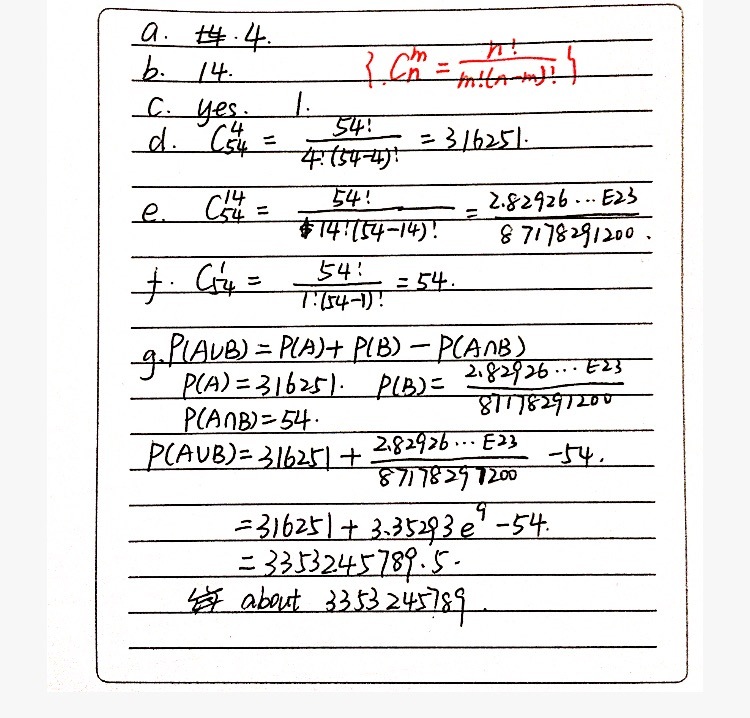 a. 4.
b. 14. {.C_n^m = n!/m!(n-m)!}
c. yes. 1.
d. C_54^4 = 54!/4!(54-4)! = 316251.
e. C_54^14 = 54!/14!(54-14)! = 2.82926...E23/87178291200.
f. C_54^1 = 54!/1!(54-1)! = 54.
g. P(A∪B) = P(A) + P(B) - P(A∩B)
P(A) = 316251. P(B) = 2.82926...E23/87178291200
P(A∩B) = 54.
P(A∪B) = 316251 + 2.82926...E23/87178297200 - 54.
= 316251 + 3.35293e^9 - 54.
= 3353245789.5.
about 3353245789.